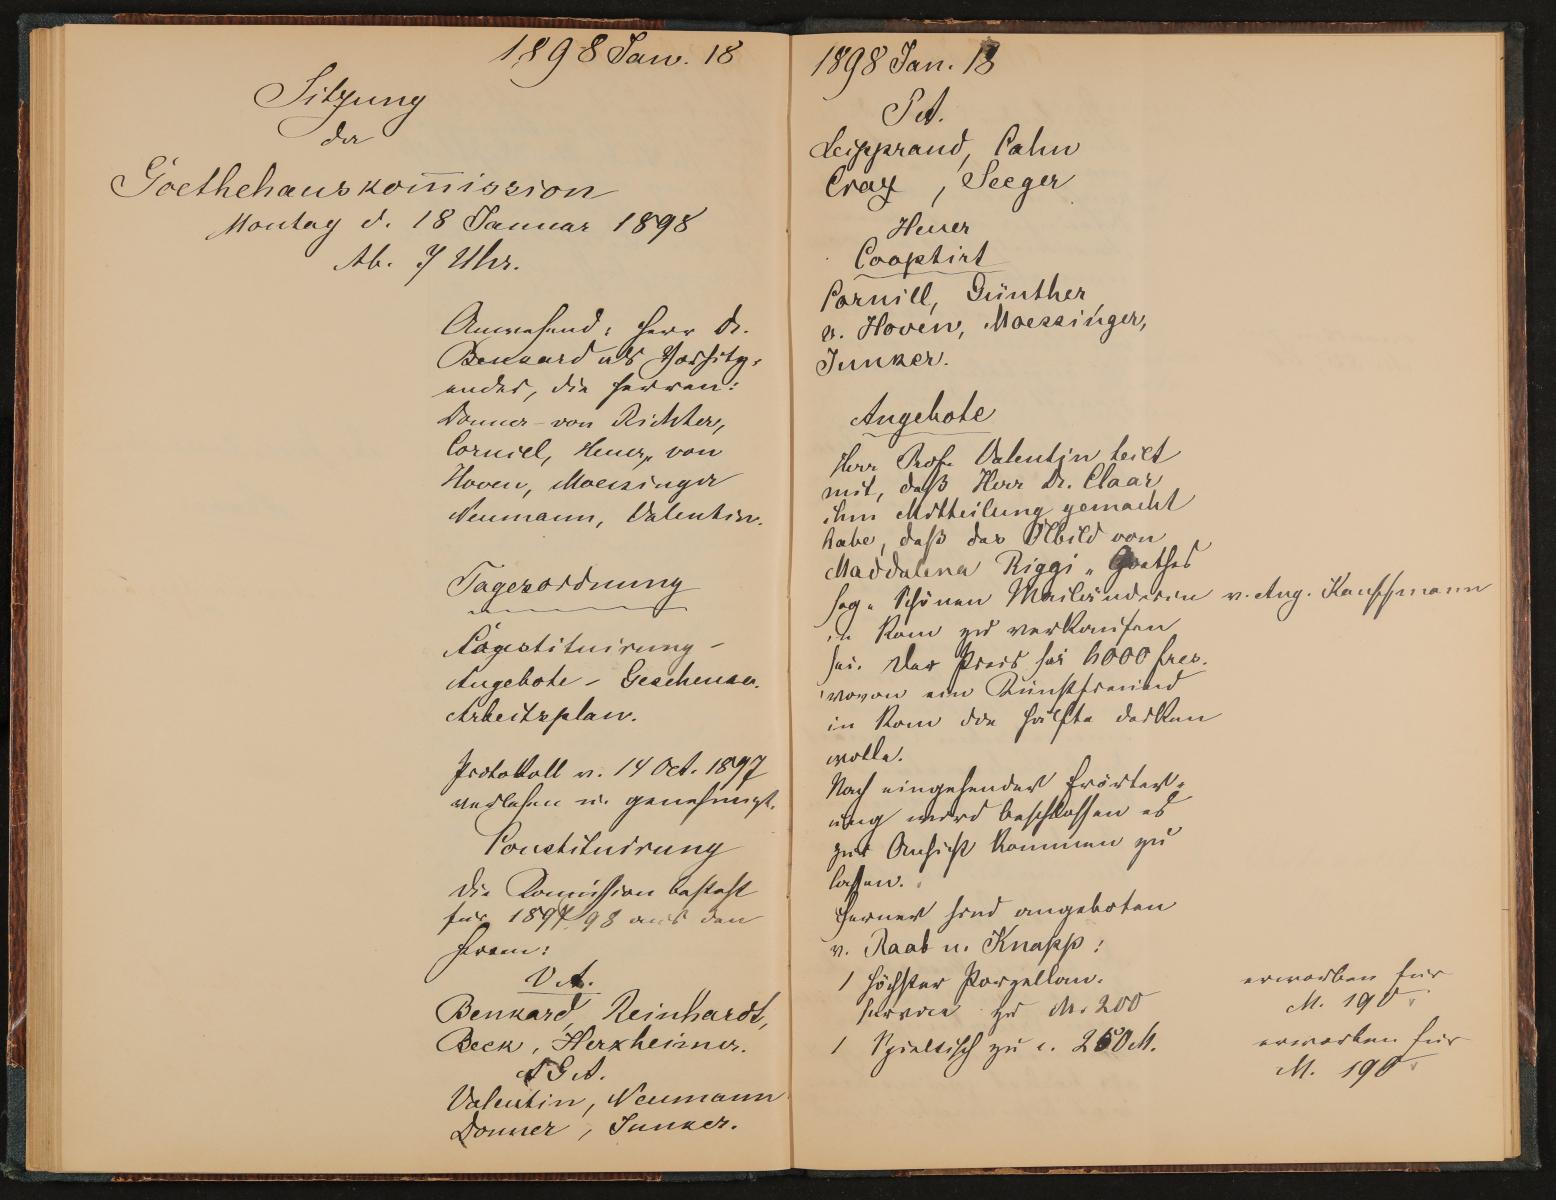 1898 Jan. 18
Sitzung
der
Goethehauskom̅ission
Montag d. 18 Januar 1898
Ab. 7 Uhr.
Anwesend: Herr Dr.
Benkard als Vorsitz-
ender, die Herren:
Donner-von Richter,
Cornill, Heuer, von
Hoven, Moessinger
Neumann, Valentin.
Tagesordnung
Constituirung -
Angebote - Geschenke.
Arbeitsplan.
Protokoll v. 14 Oct. 1897
verlesen u. genehmigt.
Constituirung
Die Kommission besteht
für 1897/98 aus den
Herren:
V A.
Benkard, Reinhardt,
Beck, Herxheimer.
A G A.
Valentin, Neumann
Donner, Junker.
1898 Jan. 18
Leipprand, Cahn
, Seeger
Heuer
Cooptirt
Cornill, Günther,
v. Hoven, Moessinger,
Junker.
Angebote
Herr Prof. Valentin teilt
mit, daß Herr Dr. Claar
ihm Mittheilung gemacht
habe, daß das Ölbild von
Maddalena Riggi, Goethes
sog. Schönen Mailänderin v. Ang. Kauffmann
in Rom zu verkaufen
sei. Der Preis sei 6000 frcs.
wovon ein Kunstfreund
in Rom die Hälfte decken
wolle.
Nach eingehender Erörter-
ung wird beschlossen es
zur Ansicht kommen zu
lassen.
Ferner sind angeboten
v. Raab u. Knapp:
1 Höchster Porzellan- erworben für
service zu M. 200 M. 190
1 Spieltisch zu 250 M. erworben für
M. 190